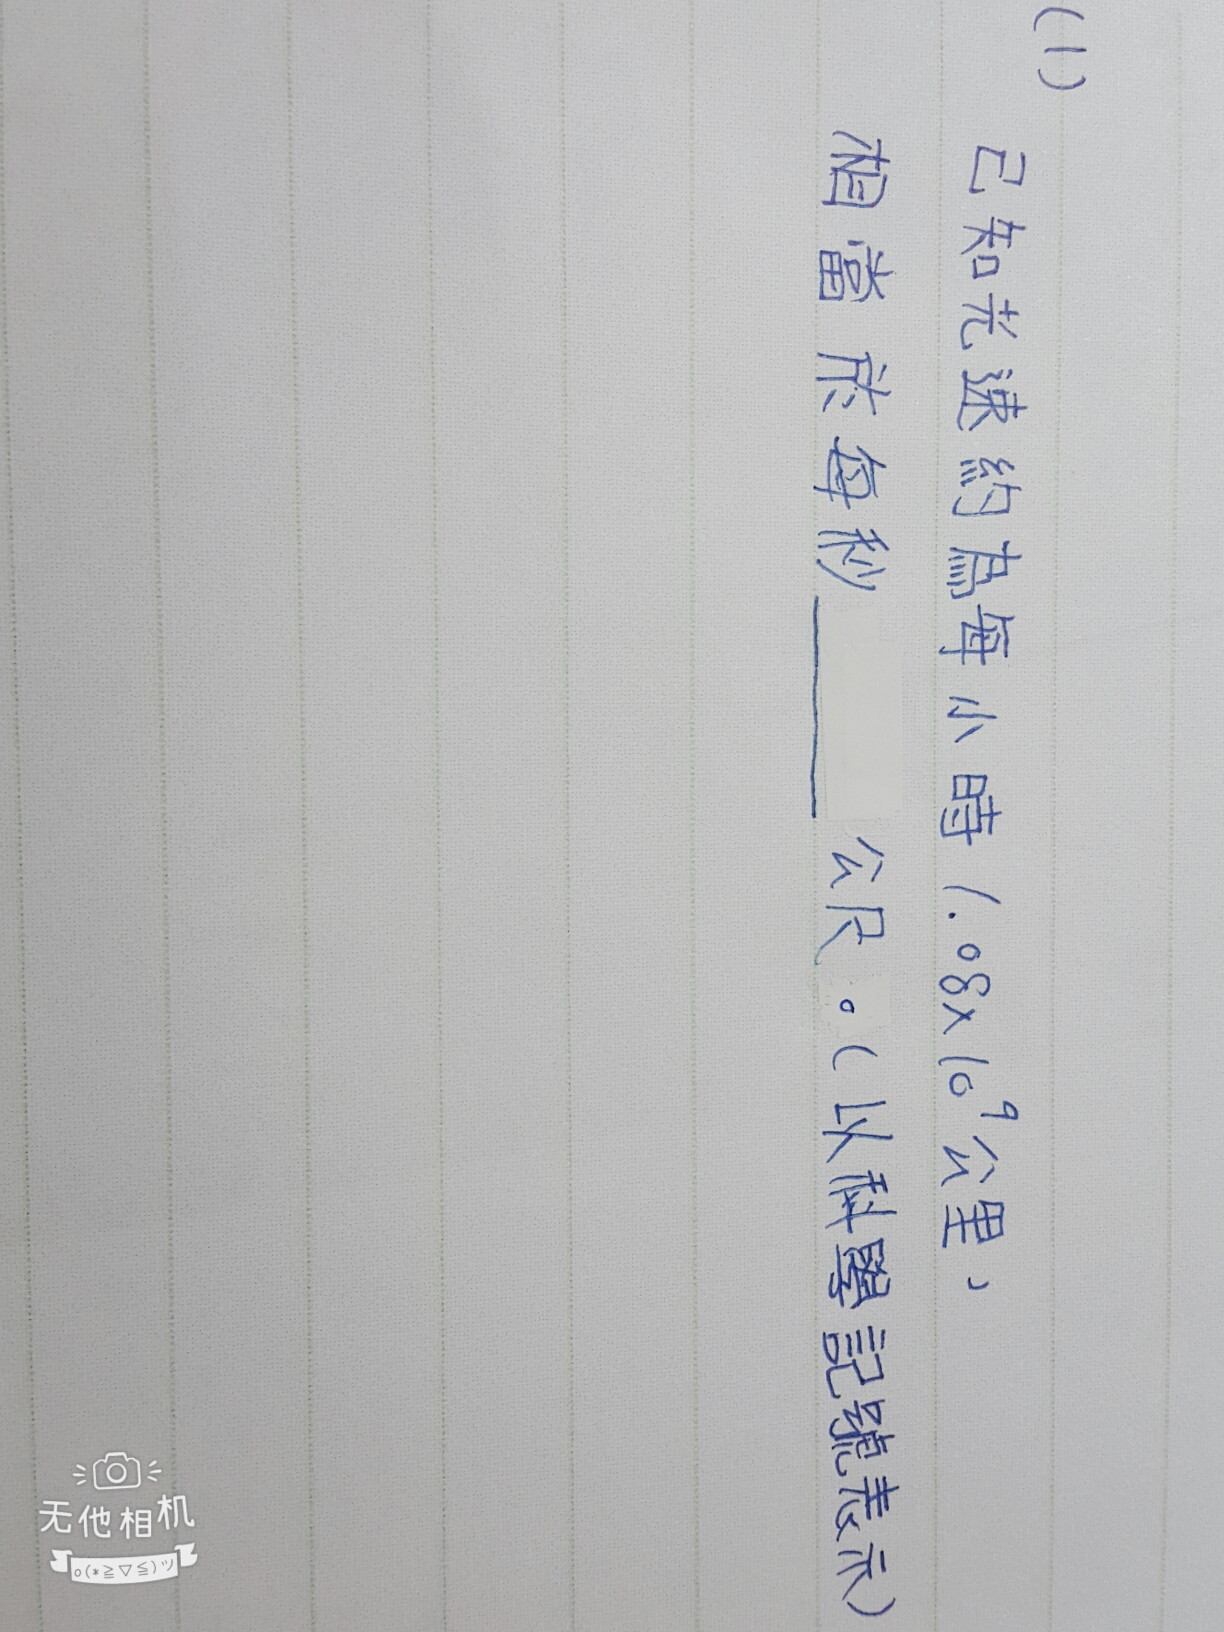 (1)
已知光速約為每小時1.08×10⁹公里,
相當於每秒______公尺。(以科學記號表示)
无他相机
o(*≧▽≦)ツ